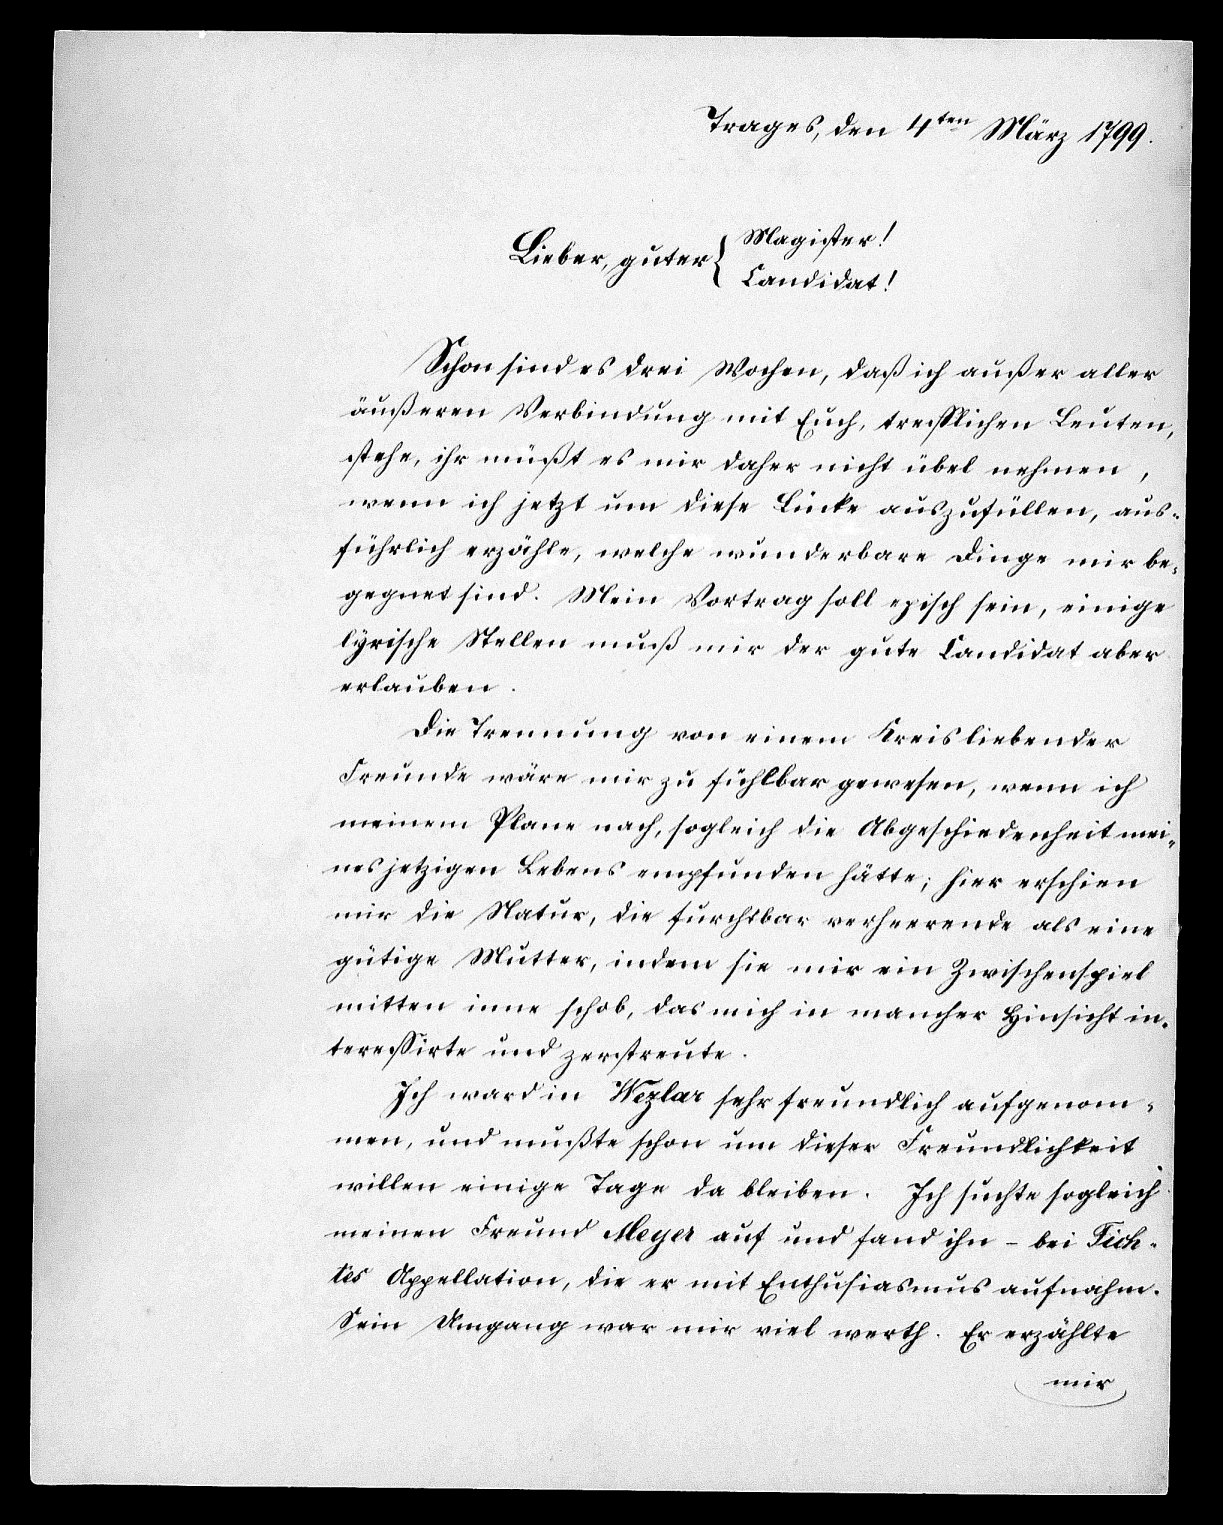 Trages, den 4ten März 1799.
Lieber, guter { Magister!
Candidat!
Schon sind es drei Wochen, daß ich außer aller
äußeren Verbindung mit Euch, trefflichen Leuten,
stehe, ihr müßt es mir daher nicht übel nehmen,
wenn ich jetzt um diese Lücke auszufüllen, aus=
führlich erzähle, welche wunderbare Dinge mir be=
gegnet sind. Mein Vortrag soll episch sein, einige
lyrische Stellen muß mir der gute Candidat aber
erlauben.
Die Trennung von einem Kreis liebender
Freunde wäre mir zu fühlbar gewesen, wenn ich
meinem Plane nach, sogleich die Abgeschiedenheit mei=
nes jetzigen Lebens empfunden hätte; hier erschien
mir die Natur, die furchtbar verheerende als eine
gütige Mutter, indem sie mir ein Zwischenspiel
mitten inne schob, das mich in mancher Hinsicht in=
teressirte und zerstreute.
Ich ward in Wezlar sehr freundlich aufgenom=
men, und mußte schon um dieser Freundlichkeit
willen einige Tage da bleiben. Ich suchte sogleich
meinen Freund Meyer auf und fand ihn – bei Fich=
tes Appellation, die er mit Enthusiasmus aufnahm.
Sein Umgang war mir viel werth. Er erzählte
mir